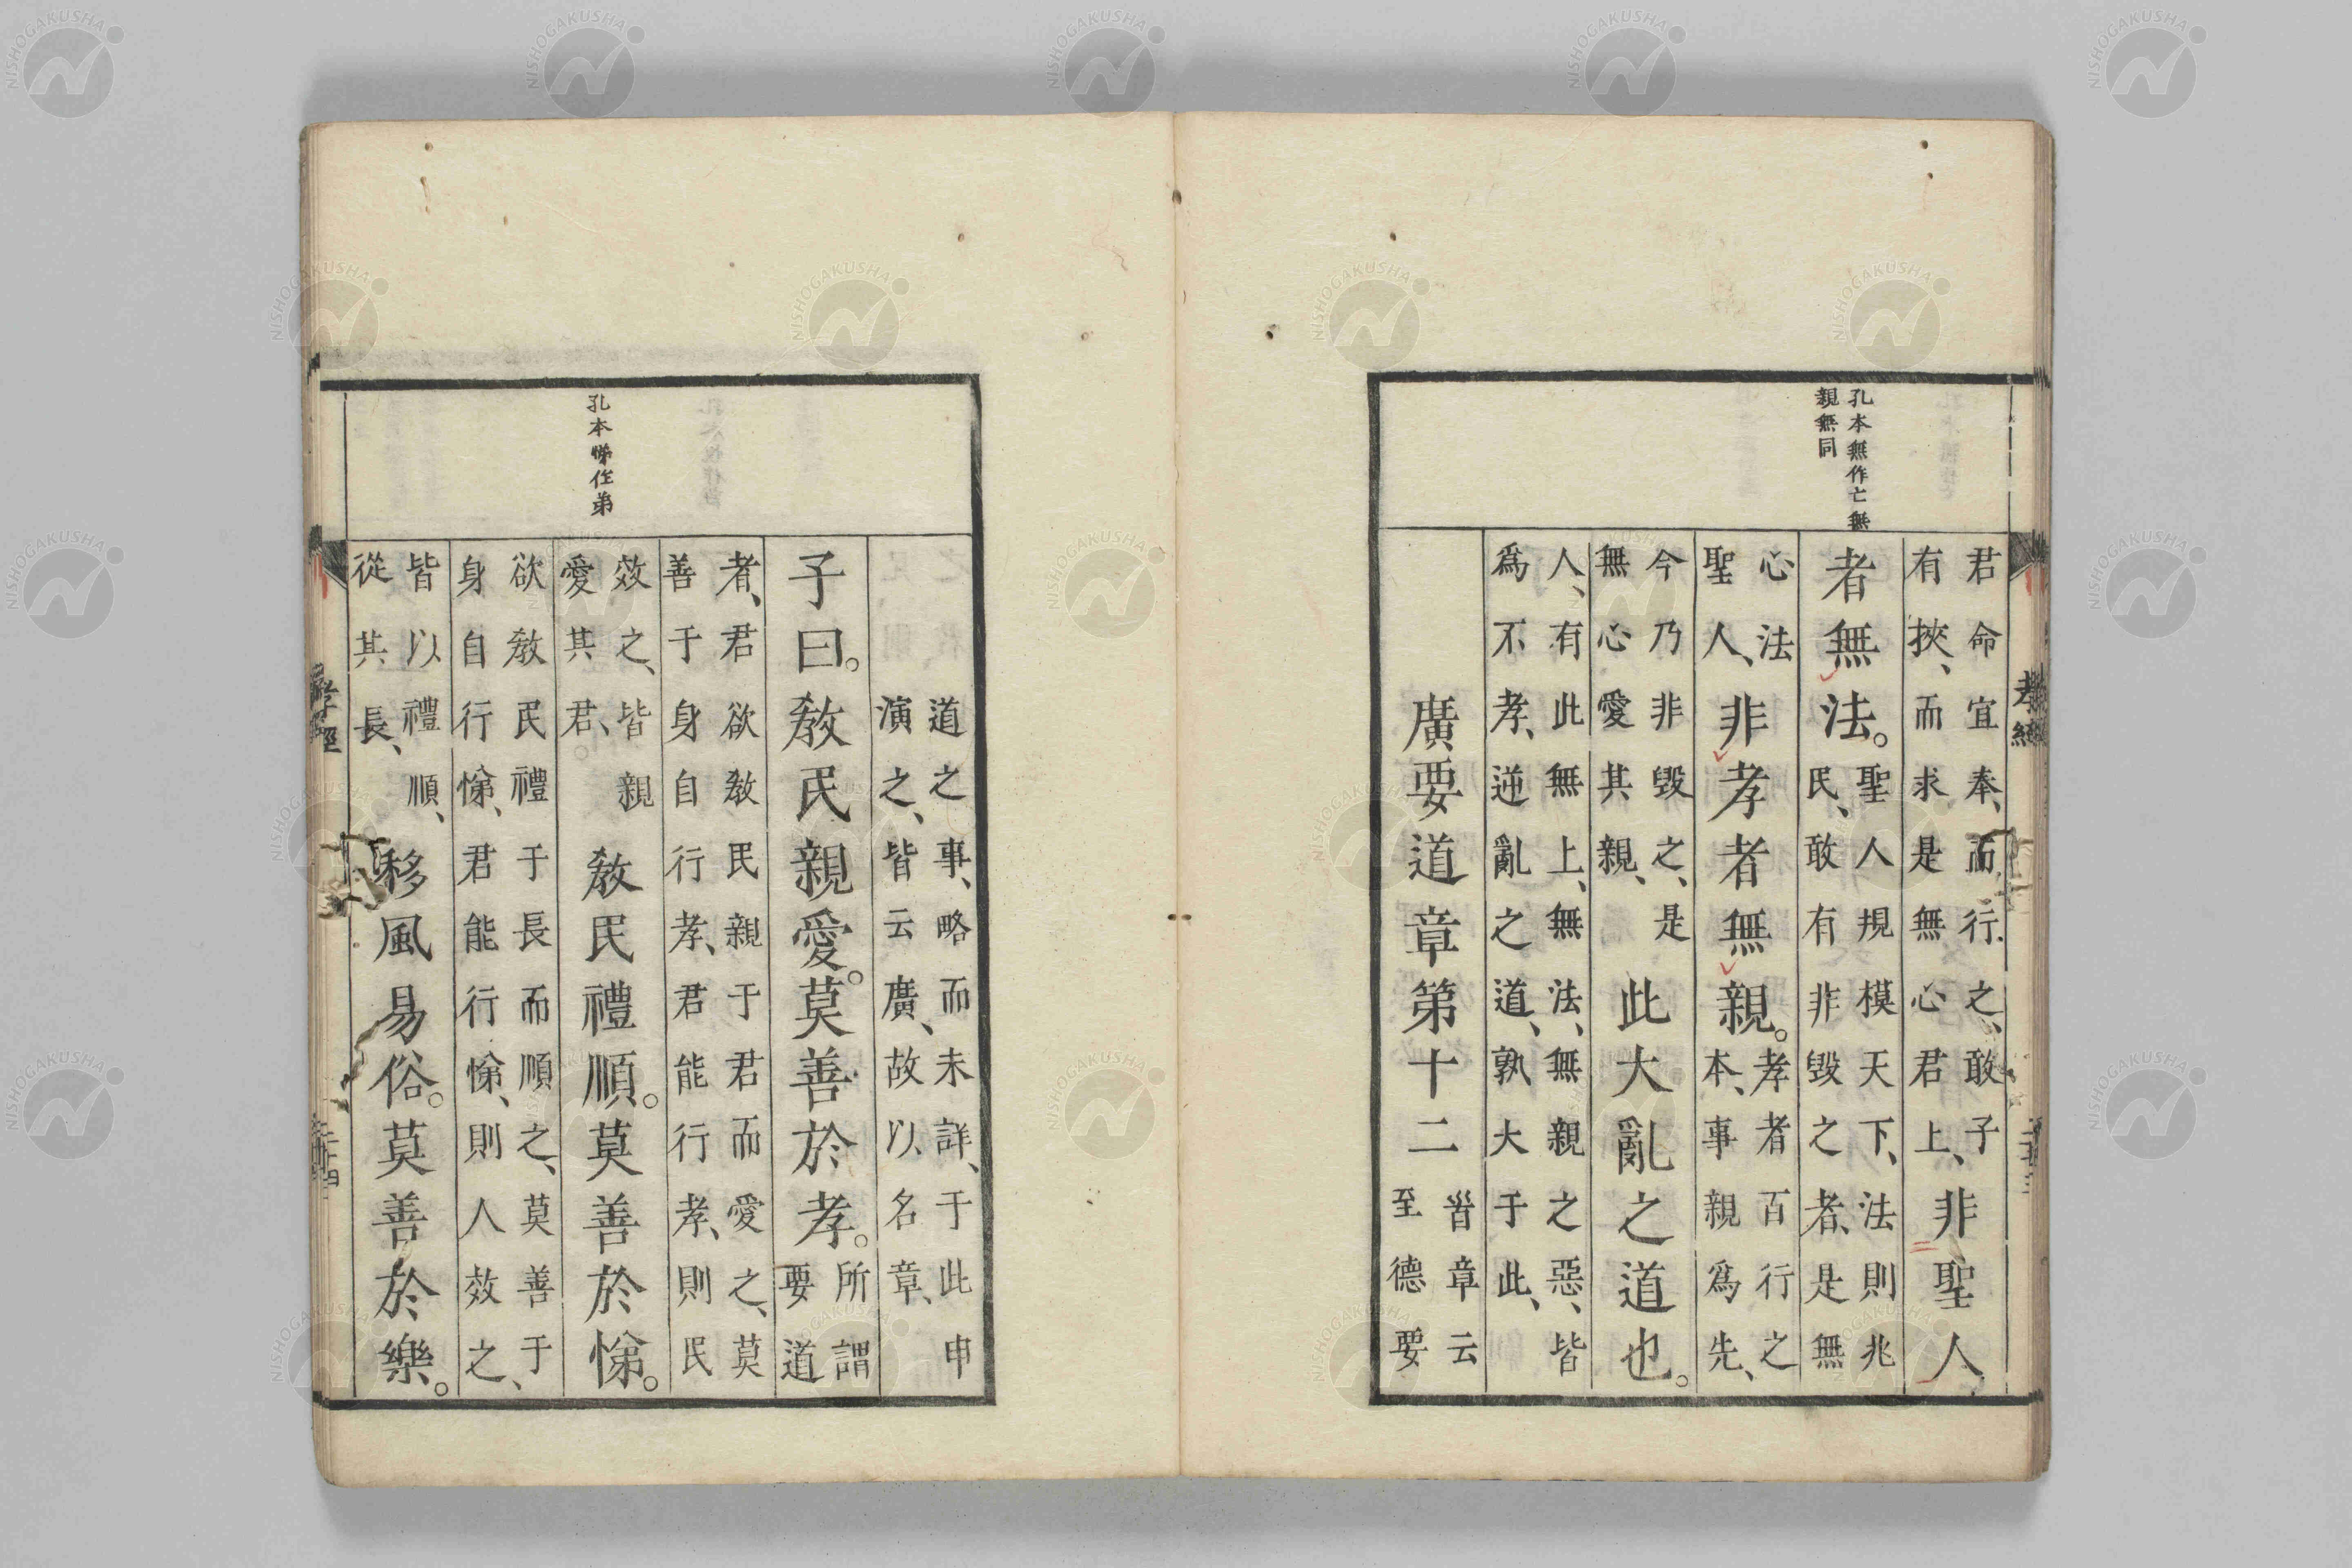 孔本無作亡無
親無同
君命宜奉、而行之、敢子
有挾、而求是無心君上、
非聖人
者無法。
聖人規模天下、法則兆
民、敢有非毀之者、是無
心法
聖人、
非孝者無親。
孝者百行之
本、事親爲先、
今乃非毀之、是
無心愛其親、
此大亂之道也。
人、有此無上、無法、無親之惡、皆
爲不孝、逆亂之道、孰大于此、
廣要道章第十二
首章云
至德要
孔本悌作弟
道之事、略而未詳、于此申
演之、皆云廣、故以名章、
子曰。敎民親愛。莫善於孝。
所謂
要道
者、君欲敎民親于君而愛之、莫
善于身自行孝、君能行孝、則民
效之、皆親
愛其君、
敎民禮順。莫善於悌。
欲敎民禮于長而順之、莫善于、
身自行悌、君能行悌、則人效之、
皆以禮順、
從其長、
移風易俗。莫善於樂。
孝經
NISHOGAKUSHA